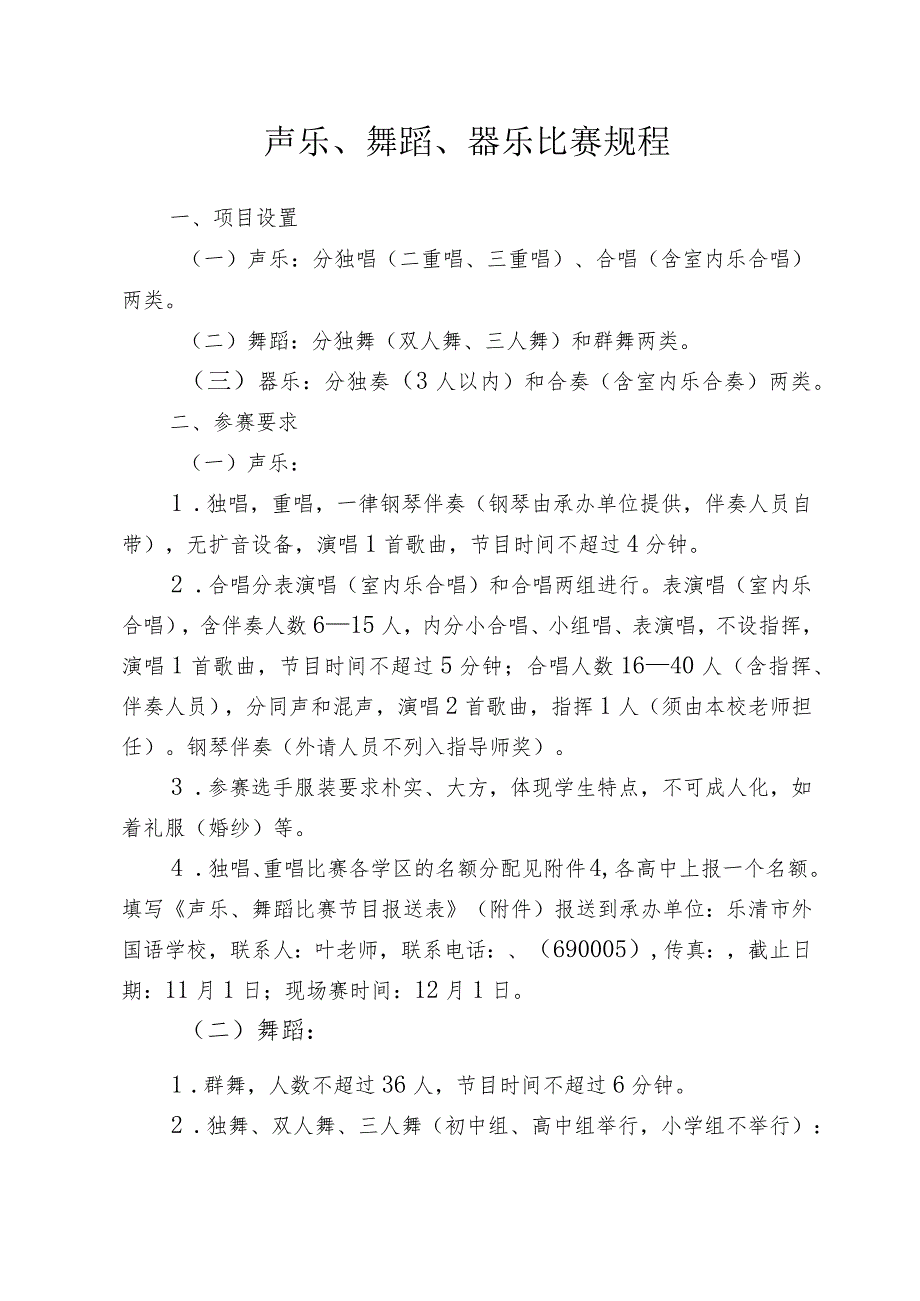 声乐、舞蹈、器乐比赛规程
一、项目设置
（一）声乐：分独唱（二重唱、三重唱）、合唱（含室内乐合唱）
两类。
（二）舞蹈：分独舞（双人舞、三人舞）和群舞两类。
（三）器乐：分独奏（3人以内）和合奏（含室内乐合奏）两类。
二、参赛要求
（一）声乐：
1.独唱，重唱，一律钢琴伴奏（钢琴由承办单位提供，伴奏人员自
带），无扩音设备，演唱1首歌曲，节目时间不超过4分钟。
2.合唱分表演唱（室内乐合唱）和合唱两组进行。表演唱（室内乐
合唱），含伴奏人数6—15人，内分小合唱、小组唱、表演唱，不设指挥，
演唱1首歌曲，节目时间不超过5分钟；合唱人数16—40人（含指挥、
伴奏人员），分同声和混声，演唱2首歌曲，指挥1人（须由本校老师担
任）。钢琴伴奏（外请人员不列入指导师奖）。
3.参赛选手服装要求朴实、大方，体现学生特点，不可成人化，如
着礼服（婚纱）等。
4.独唱、重唱比赛各学区的名额分配见附件4,各高中上报一个名额。
填写《声乐、舞蹈比赛节目报送表》（附件）报送到承办单位：乐清市外
国语学校，联系人：叶老师，联系电话：、（690005）,传真：，截止日
期：11月1日；现场赛时间：12月1日。
（二）舞蹈：
1.群舞，人数不超过36人，节目时间不超过6分钟。
2.独舞、双人舞、三人舞（初中组、高中组举行，小学组不举行）：